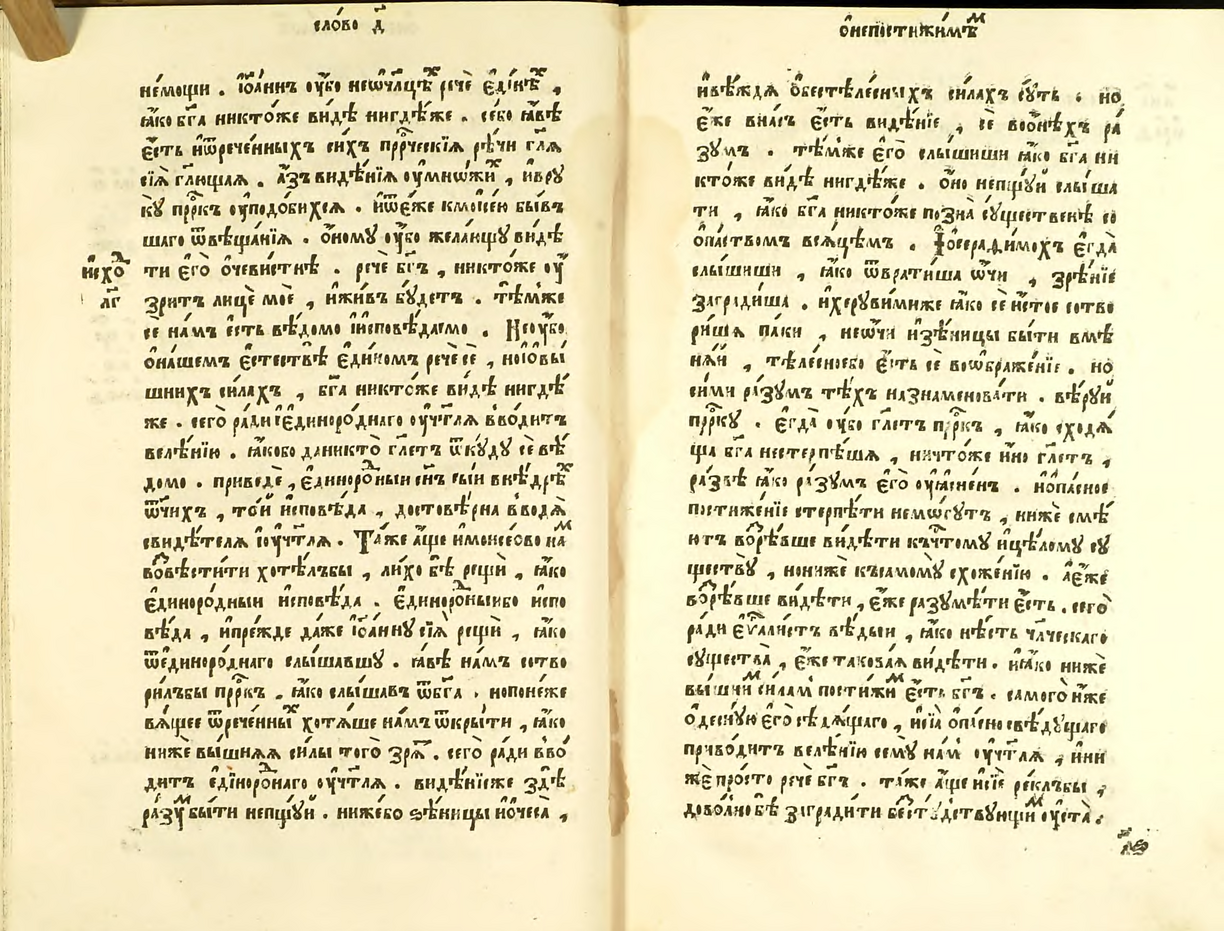 сло́во д҃
не́мощи . їѡ́аннъ ᲂу҆́бо неѿч҃лцѣⷯ речѐ є҆ди́нѣⷯ ,
ꙗ҆́ко бг҃а никто́же видѣ̀ нигдѣ́же . се́бо ꙗ҆́вѣ
є҆́сть иѿрече́нныхъ си́хъ прⷪ҇рческїѧ рѣ́чи гл҃ѧ
сїѧ̀ гл҃ющаѧ . а҆́зъ видѣ́нїѧ ᲂу҆мно́жиⷯ , ивру
кꙋ̀ прⷪ҇ркъ ᲂу҆подо́бихсѧ . иѿє҆́же кмоѷсе́ю бы́въ
шаго ѿвѣща́нїѧ . ѻ҆номꙋ ᲂу҆́бо жела́ющꙋ ви́дѣ
ти є҆го̀ ѻ҆чеви́стнѣ . речѐ бг҃ъ , никто́же ᲂу҆
исхоⷣ
лг҃
зри́тъ лицѐ моѐ , и҆жи́въ бꙋ́детъ . тѣ́мже
се на́мъ є҆́сть вѣ́домо и҆и҆сповѣ́даемо . Неᲂу҆́бо
ѻ҆на́шемъ є҆стествѣ̀ є҆ди́номъ речѐ сѐ , ноіѻ҆вы́
шнихъ си́лахъ , бг҃а никто́же видѣ̀ нигдѣ́
же . сего̀ ра́ди і҆є҆диноро́днаго ᲂу҆чт҃лѧ вво́дитъ
велѣ́нїю . ꙗ҆́кобо даникто̀ гл҃етъ ѿкꙋ́дꙋ сѐ вѣ́
домо . приведѐ , є҆диноро́ⷣныи сн҃ъ сы́и внѣ́дрѣⷯ
ѿ́чихъ , то́и и҆сповѣ́да , достовѣ́рна вводѧ̀
свидѣ́телѧ і҆ᲂу҆чт҃лѧ . Та́же а҆́ще и҆моѷсео́во наⷨ
возвѣсти́ти хотѣ́лъбы , ли́хо бѣ̀ рещѝ , ꙗ҆́ко
є҆диноро́дныи и҆сповѣ́да . є҆диноро́ⷣныибо и҆спо
вѣ́да , и҆пре́жде да́же і҆ѡа́ннꙋ сїѧ̀ рещѝ , ꙗ҆́ко
ѿє҆диноро́днаго слы́шавшꙋ . ꙗ҆́вѣ на́мъ сотво
ри́лъбы прⷪ҇ркъ , ꙗ҆́ко слы́шавъ ѿбг҃а . нопоне́же
вѧ́щее ѿрече́нныⷯ хотѧ́ше на́мъ ѿкры́ти , ꙗ҆́ко
нижѐ вы́шнѧѧ си́лы того̀ зрѧ́ⷮ . сего̀ ра́ди вво́
дитъ є҆диноро́ⷣнаго ᲂу҆чт҃лѧ . видѣ́нїеже здѣ̀
ра́зꙋⷨ бы́ти непщꙋ́и . нижебо зѣ́ницы и҆ѻ҆чеса̀ ,
ѻ҆непости́жимѣⷨ
и҆вѣ́ждѧ ѻ҆бестѣле́сныхъ си́лахъ сꙋ́ть . но
є҆́же вна́съ є҆́сть видѣ́нїе , сѐ воѻ҆нѣ́хъ ра́
зꙋмъ . тѣ́мже є҆го̀ слы́шиши ꙗ҆́ко бг҃а ни
кто́же видѣ̀ нигдѣ́же . ѻ҆но̀ непщꙋ́и слы́ша
ти , ꙗ҆́ко бг҃а никто́же позна̀ сꙋщественѣ̀ со
ѻ҆па́ствомъ всѧ́цѣмъ . І҆осерафи́мохъ є҆гда̀
слы́шиши , ꙗ҆́ко ѿврати́ша ѻ҆́чи , зрѣ́нїе
загради́ша . и҆херꙋви́миже ꙗ҆́ко сѐ и҆́стое сотво
ри́шѧ па́ки , неѻ҆́чи и҆зѣ́ницы бы́ти вмѣ
нѧ́й , тѣле́сноебо є҆́сть сѐ воѡбраже́нїе . но
си́ми ра́зꙋмъ тѣ́хъ назнаменова́ти . вѣ́рꙋи
прⷪ҇ркꙋ . є҆гда̀ ᲂу҆́бо гл҃етъ прⷪ҇ркъ , ꙗ҆́ко сходѧ́
ща бг҃а нестерпѣ́шѧ , ничто́же и҆́но гл҃етъ ,
ра́звѣ ꙗ҆́ко ра́зꙋмъ є҆го̀ ᲂу҆ѧсне́нъ . и҆ѻ҆па́сное
постиже́нїе стерпѣ́ти немо́гꙋтъ , нижѐ смѣ́
ютъ возрѣ́вше ви́дѣти къчи́стомꙋ и҆цѣ́ломꙋ сꙋ
ществꙋ̀ , нониже къса́момꙋ схоже́нїю . а҆є҆́же
возрѣ́вше ви́дѣти , є҆́же разꙋмѣ́ти є҆́сть . сего̀
ра́ди є҆ѵⷢ҇али́стъ вѣ́дыи , ꙗ҆́ко нѣ́сть чл҃ческаго
сꙋщества̀ , є҆́же такова́ѧ ви́дѣти . и҆ꙗ҆́ко нижѐ
вы́шниⷨ си́ламⷨ пости́жиⷨ є҆́сть бг҃ъ . самого̀ и҆́же
ѻ҆деснꙋ́ю є҆го̀ сѣдѧ́щаго , и҆сїѧ̀ ѻ҆па́сно свѣ́дꙋщаго
приво́дитъ велѣ́нїю семꙋ̀ на́м ᲂу҆чт҃лѧ , и҆ни
жѐ про́сто речѐ бг҃ъ . та́же а҆́ще и҆сїѐ ре́клъбы ,
дово́лно бѣ̀ загради́ти бестꙋ́дствꙋющиⷨ ᲂу҆ста̀ .